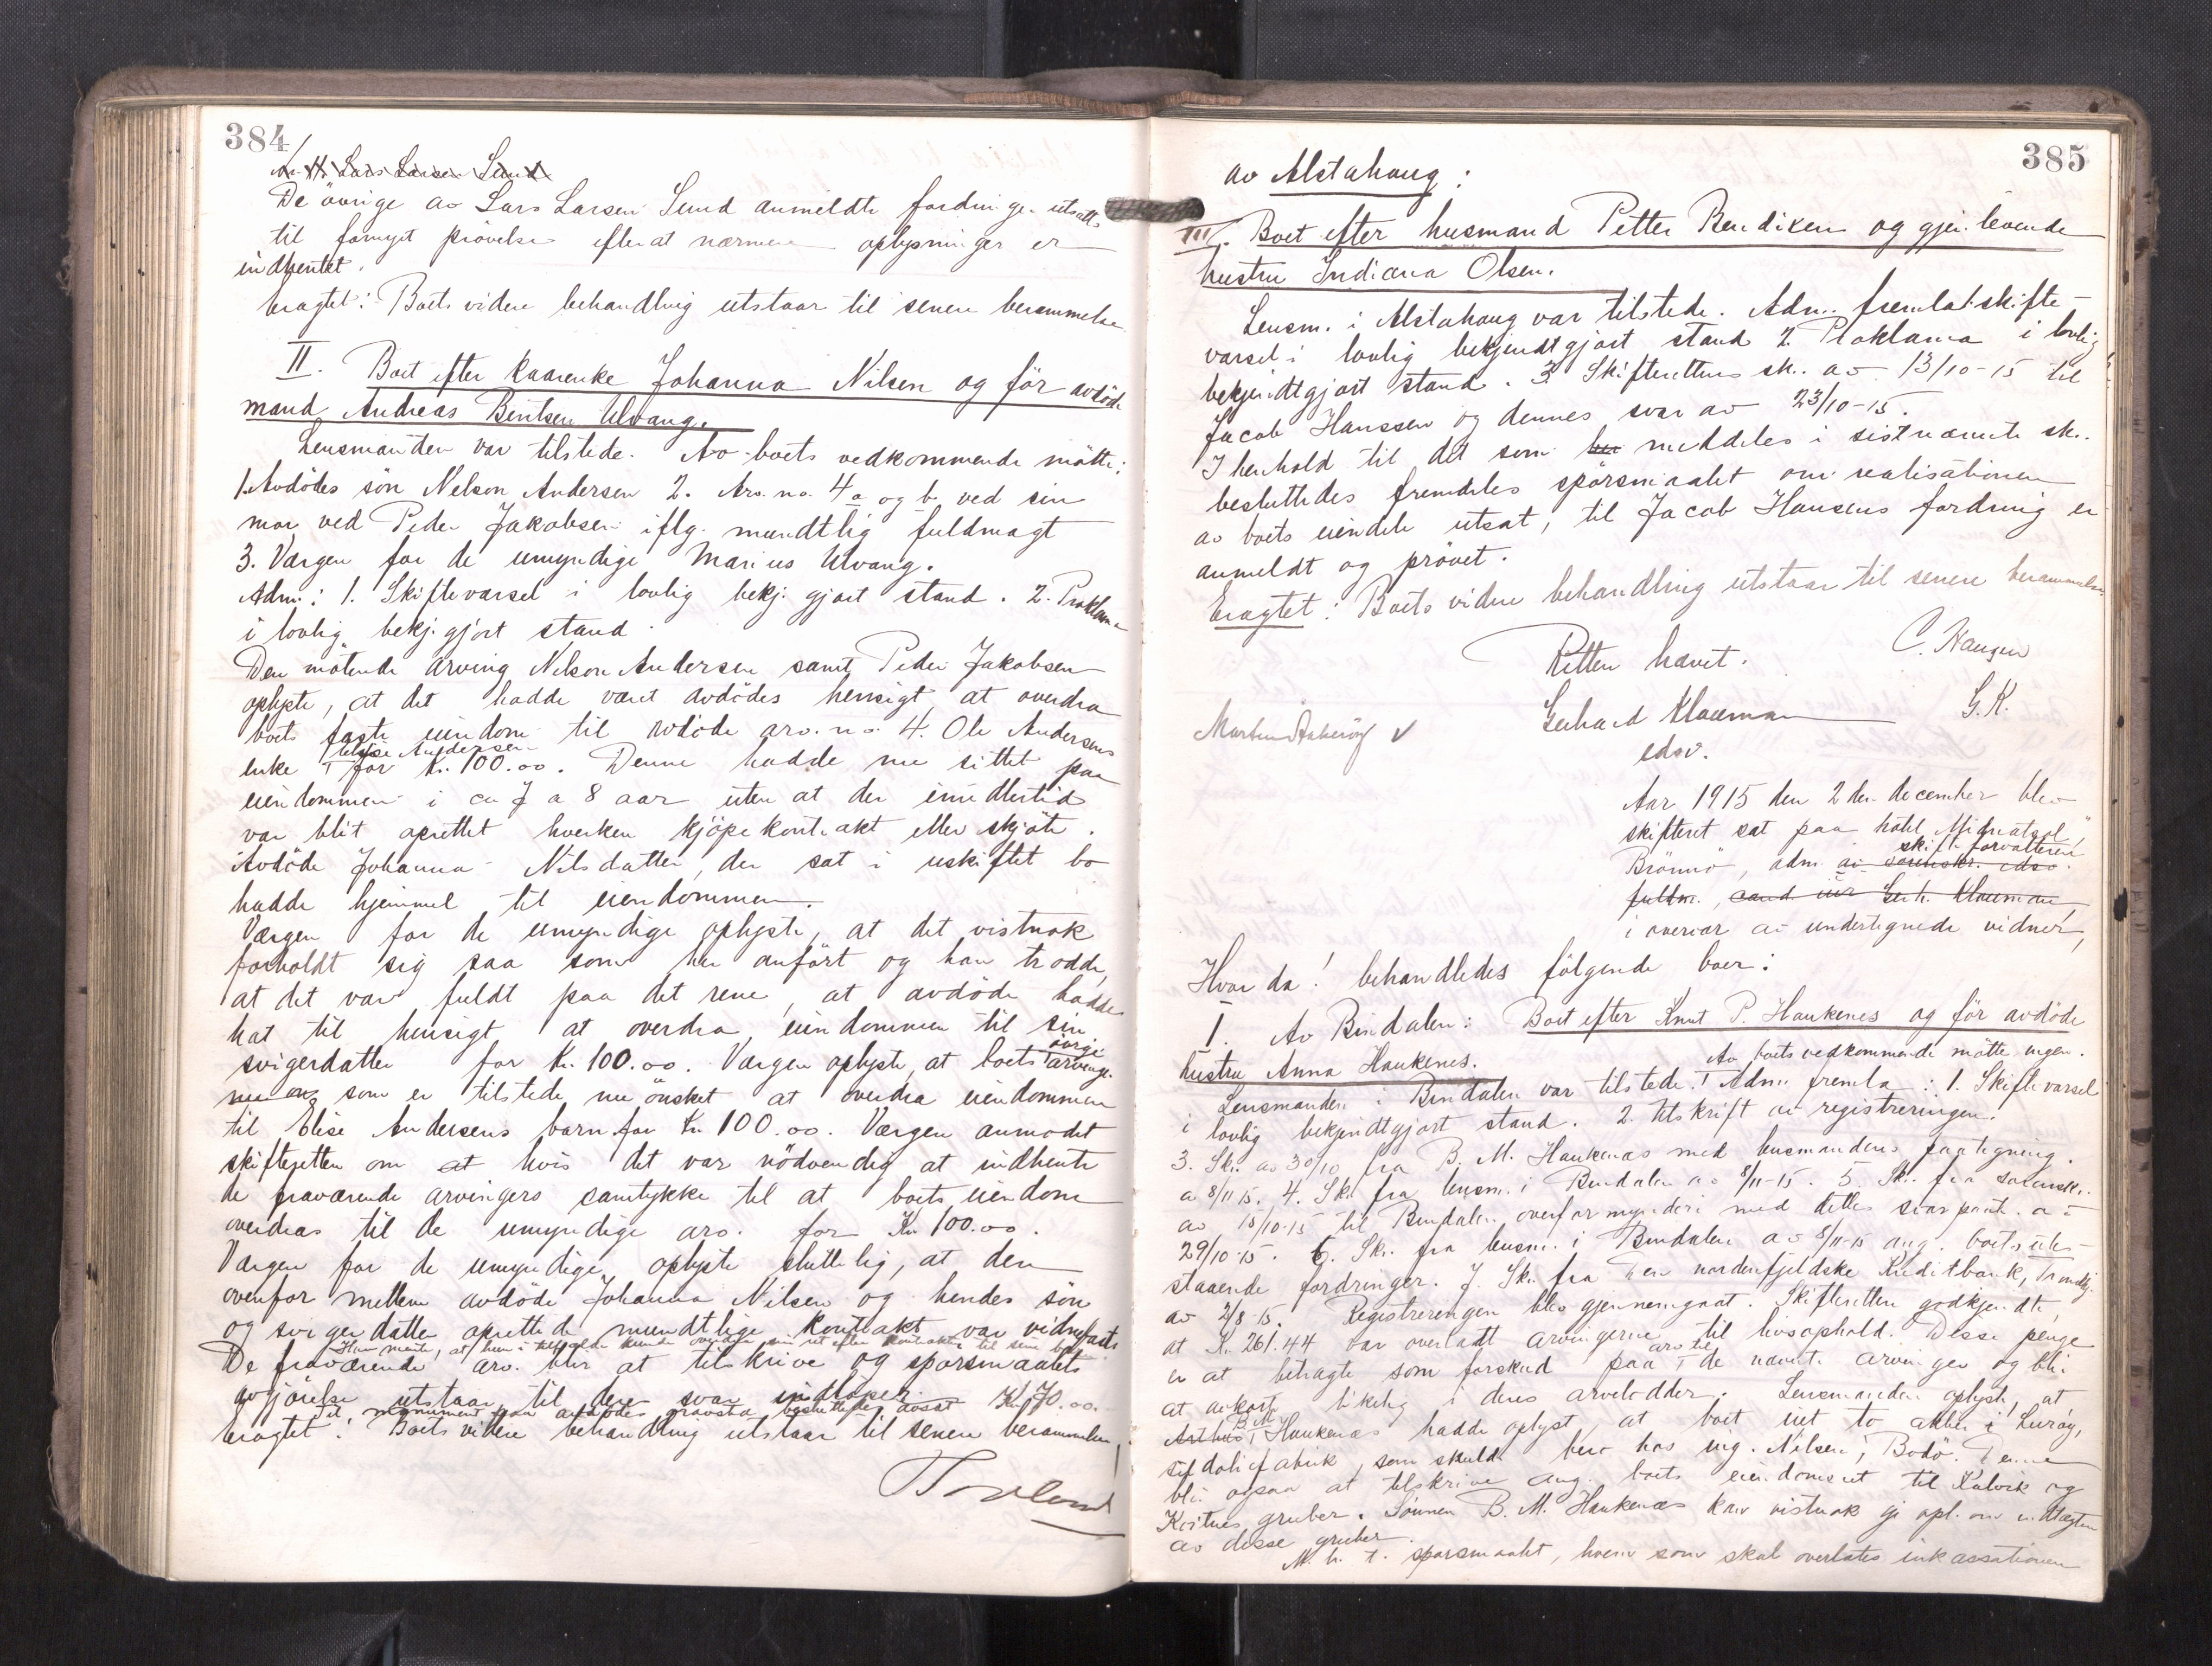 384
De övrige av Lars Larsen Sund anmeldte fordringer utsatt
til fornyet prövelse efterat nærmere oplysninger er
indhentet.
Eragtet: Boets videre behandling utstaar til senere berammelse.
II. Boet efter kaarenke Johanna Nilsen og för avdöde
mand Andreas Bentsen Ulvang.
Lensmanden var tilstede. Av boets vedkommende mötte:
1. Avdödes sön Nelson Andersen 2. Arv. no. 4 a og b ved sin
mor ved Peder Jakobsen iflg. mundtlig fuldmagt
3. Vergen for de umyndige Marius Ulvang.
Adm.: 1. Skiftevarsel i lovlig bekj. gjort stand. 2. Proklama
i lovlig bekj. gjort stand.
Den mötende arving Nelson Andersen samt Peder Jakobsen
oplyste, at det hadde været avdödes hensigt at overdra
boets faste eiendom til avdöde arv. no. 4. Ole Andersens
enke Elise Andersen for Kr. 100.00. Denne hadde nu sittet paa
eiendommen i ca 7 a 8 aar uten at der imidlertid
var blit oprettet hverken kjöpekontrakt eller skjöte.
Avdöde Johanna Nilsdatter, der sat i uskiftet bo
hadde hjemmel til eiendommen.
Vergen for de umyndige oplyste, at det vistnok
forholdt sig saa som her anfört og han trodde,
at det var fuldt paa det rene, at avdöde hadde
hat til hensigt at overdra eiendommen til sin
svigerdatter for Kr. 100.00. Vergen oplyste, at boets övrige arvinger
som er tilstede nu önsket at overdra eiendommen
til Elise Andersens barn for Kr 100.00. Vergen anmodet
skifteretten om at hvis det var nödvendig at indhente
de fraværende arvingers samtykke til at boets eiendom
overdras til de umyndige arv. for Kr 100.00.
Vergen for de umyndige oplyste sluttelig, at den
ovenfor mellem avdöde Johanna Nilsen og hendes sön
og svigerdatter oprettede mundtlige kontrakt var vidnefast.
Hun mente, at hun i tilfælde kunde overdra sin ret efter kontrakten til sine barn.
De fraværende arv. blir at tilskrive og spörsmaalets
avgjörelse utstaar til deres svar indlöper.
Til monument paa avdödes gravsted besluttedes avsat Kr. 70.00.
Eragtet: Boets videre behandling utstaar til senere berammelse.
385
av Alstahaug:
III. Boet efter husmand Petter Bendixen og gjenlevende
hustru Indiana Olsen.
Lensm. i Alstahaug var tilstede. Adm. fremla 1. skifte-
varsel i lovlig bekjendtgjort stand 2. Proklama i lovlig
bekjendtgjort stand. 3. Skifterettens sk. av 13/10-15 til
Jacob Hanssen og dennes svar av 23/10-15.
I henhold til det som her meddeles i sistnævnte sk.
besluttedes fremdeles spörsmaalet om realisationen
av boets eiendele utsat, til Jacob Hansens fordring er
anmeldt og prövet.
Eragtet: Boets videre behandling utstaar til senere berammelse.
Retten hævet.
C. Hansen
Gerhard Klaueman
G.K.
edsv.
Aar 1915 den 2den december blev
skifteret sat paa hotel "Midnatsol",
Brönnö, adm. av skifteforvalteren sorenskr. edsv.
fuldm., cand. jur. Gerh. Klaueman,
i overvær av undertegnede vidner,
Hvorda! behandledes fölgende boer:
I. Av Bindalen: Boet efter Knut P. Haukenes og för avdöde
hustru Anna Haukenes.
Av boets vedkommende mötte ingen.
Lensmanden i Bindalen var tilstede. Adm. fremla: 1. Skiftevarsel
i lovlig bekjendtgjort stand. 2. Utskrift av registreringen.
3. Sk. av 30/10 fra B. M. Haukenæs med lensmandens paategning
a 8/11 15. 4. Sk. fra lensm. i Bindalen av 8/11-15. 5. Sk. fra sorenskr.
av 18/10-15 til Bindalen overformynderi med dettes svar paat. av
29/10-15 6. Sk. fra lensm. i Bindalen av 8/11-15 ang. boets ute-
staaende fordringer. 7. Sk. fra Den nordenfjeldske Kreditbank, Trondhj.
av 2/8-15. Registreringen blev gjennemgaat. Skifteretten godkjendte,
at Kr. 261.44 var overladt arvingerne til livsophold. Disse penge
er at betragte som forskud paa arv til de nævnte arvinger og blir
at avkorte likelig i deres arvelodder. Lensmanden oplyste, at
B. M. Haukenæs hadde oplyst, at boet eiet to aktier i Luröy,
sildoljefabrik, som skulde bero hos ing. Nilsen, Bodö. Denne
blir ogsaa at tilskrive ang. boets eiendomsret til Kalvik og
gruber. Sönnen B. M. Haukenæs kan vistnok gi opl. om
av disse gruber.
M. h. t. spörsmaalet, hvem som skal overlates inkassationen